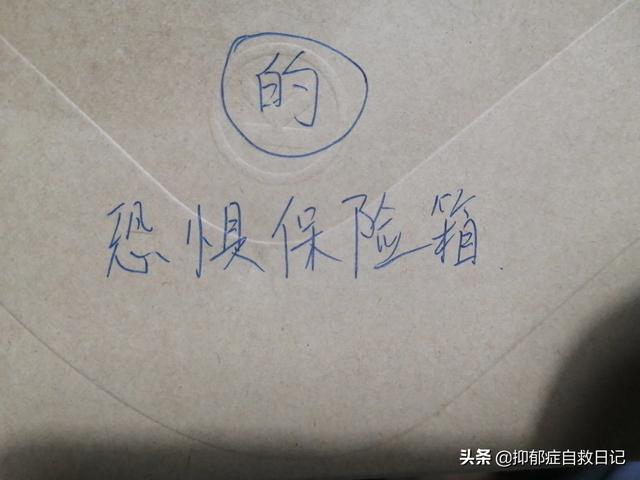 的
恐惧保险箱
头条 @抑郁症自救日记